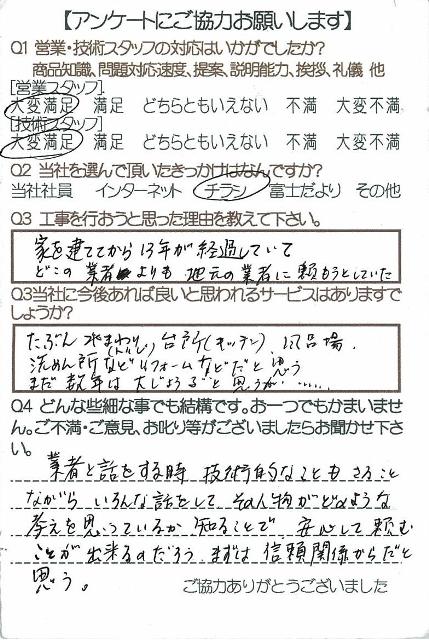 【アンケートにご協力お願いします】
Q1 営業・技術スタッフの対応はいかがでしたか?
商品知識、問題対応速度、提案、説明能力、挨拶、礼儀 他
[営業スタッフ]
大変満足 満足 どちらともいえない 不満 大変不満
[技術スタッフ]
大変満足 満足 どちらともいえない 不満 大変不満
Q2 当社を選んで頂いたきっかけはなんですか?
当社社員 インターネット チラシ 富士だより その他
Q3 工事を行おうと思った理由を教えて下さい。
家を建ててから13年が経過していて
どこの業者よりも地元の業者に頼もうとしていた
Q3当社に今後あれば良いと思われるサービスはありますで
しょうか?
たぶん水まわり 台所(キッチン)、風呂場、
洗めん所などリフォームなどだと思う
まだ数年は大じょうぶと思うが……
Q4 どんな些細な事でも結構です。お一つでもかまいませ
ん。ご不満・ご意見、お叱り等がございましたらお聞かせ下さ
い。
業者と話をする時 技術的なこともさること
ながら いろんな話をして その人物がどのような
考えを思っているか 知ることで 安心して頼む
ことが出来るのだろう まずは信頼関係からだと
思う。
ご協力ありがとうございました